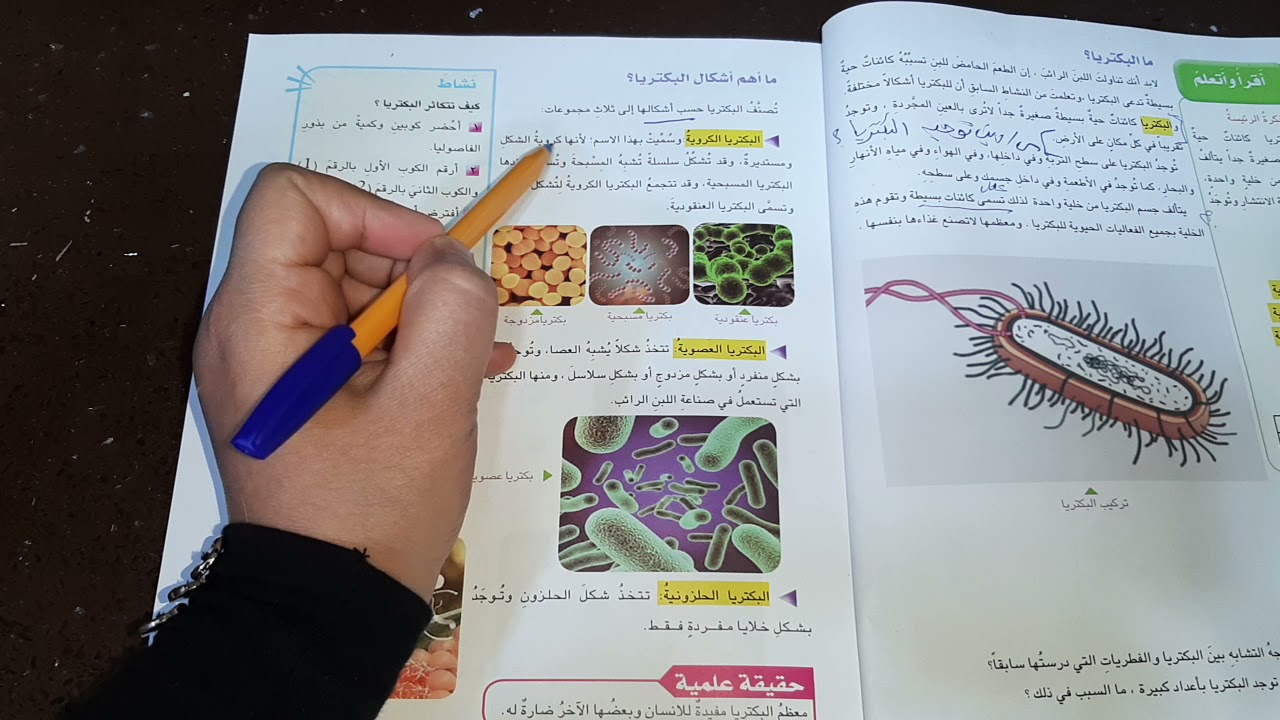 أقرأ وأتعلم
ما البكتريا؟
لابد أنك تناولت اللبن الرائب، إن الطعمَ الحامضَ للبنِ تسبِّبُهُ كائناتٌ حيةٌ
بسيطةٌ تدعى البكتريا ،وتعلمتَ من النشاط السابق أن للبكتريا أشكالاً مختلفةً.
والبكتريا كائناتٌ حيةٌ بسيطةٌ صغيرةٌ جداً لاترى بالعين المجَّردة ، وتوجدُ
تقريباً في كلِّ مكان على الأرض. اين توجد البكتريا ؟
توجدُ البكتريا على سطحِ التربةِ وفي داخلها، وفي الهواء وفي مياهِ الأنهارِ
والبحار، كما تُوجدُ في الأطعمة وفي داخل جسمك وعلى سطحِهِ.
يتألفُ جسم البكتريا من خلية واحدة لذلك تسمى كائنات بسيطة وتقوم هذهِ
الخلية بجميع الفعاليات الحيوية للبكتريا . ومعظمها لاتصنع غذاءها بنفسها .
تركيب البكتريا
كائناتٌ حيةٌ
صغيرةٌ جداً يتألف
من خلية واحدة،
جهُ التشابهِ بينَ البكتريا والفطريات التي درستُها سابقاً؟
توجد البكتريا بأعداد كبيرة ، ما السبب في ذلك ؟
ما أهم أشكال البكتريا؟
تُصنَّفُ البكتريا حسب أشكالها إلى ثلاثِ مجموعات:
البكتريا الكرويةُ وسُمِّيتْ بهذا الاسم؛ لأنها كرويةُ الشكل
ومستديرةٌ، وقد تُشكِّلُ سلسلةً تُشبهُ المِسْبحةَ
البكتريا المسبحية، وقد تتجمعُ البكتريا الكرويةُ لتشكل
وتسمَّى البكتريا العنقودية.
بكتريا عنقودية
بكتريا مسبحية
بكتريا مزدوجة
البكتريا العصويةُ: تتخذُ شكلاً يُشبهُ العصا،
بشكلٍ منفردٍ أو بشكلٍ مزدوجٍ أو بشكلِ سلاسلَ ، ومنها البكتريا
التي تستعملُ في صناعةِ اللبنِ الرائب.
بكتريا
البكتريا الحلزونيةُ: تتخذُ شكلَ الحلزونِ وتُوجَدُ
بشكلِ خلايا مفردةٍ فقط.
حقيقة علمية
معظمُ البكتريا مفيدةٌ للانسان وبعضُها الآخرُ ضارةٌ له.
نشاط
كيف تتكاثر البكتريا ؟
١ أُحضر كوبين وكميةً من بذورِ
الفاصوليا.
٢ أرقم الكوب الأول بالرقم (1)
والكوب الثاني بالرقم
أفترض